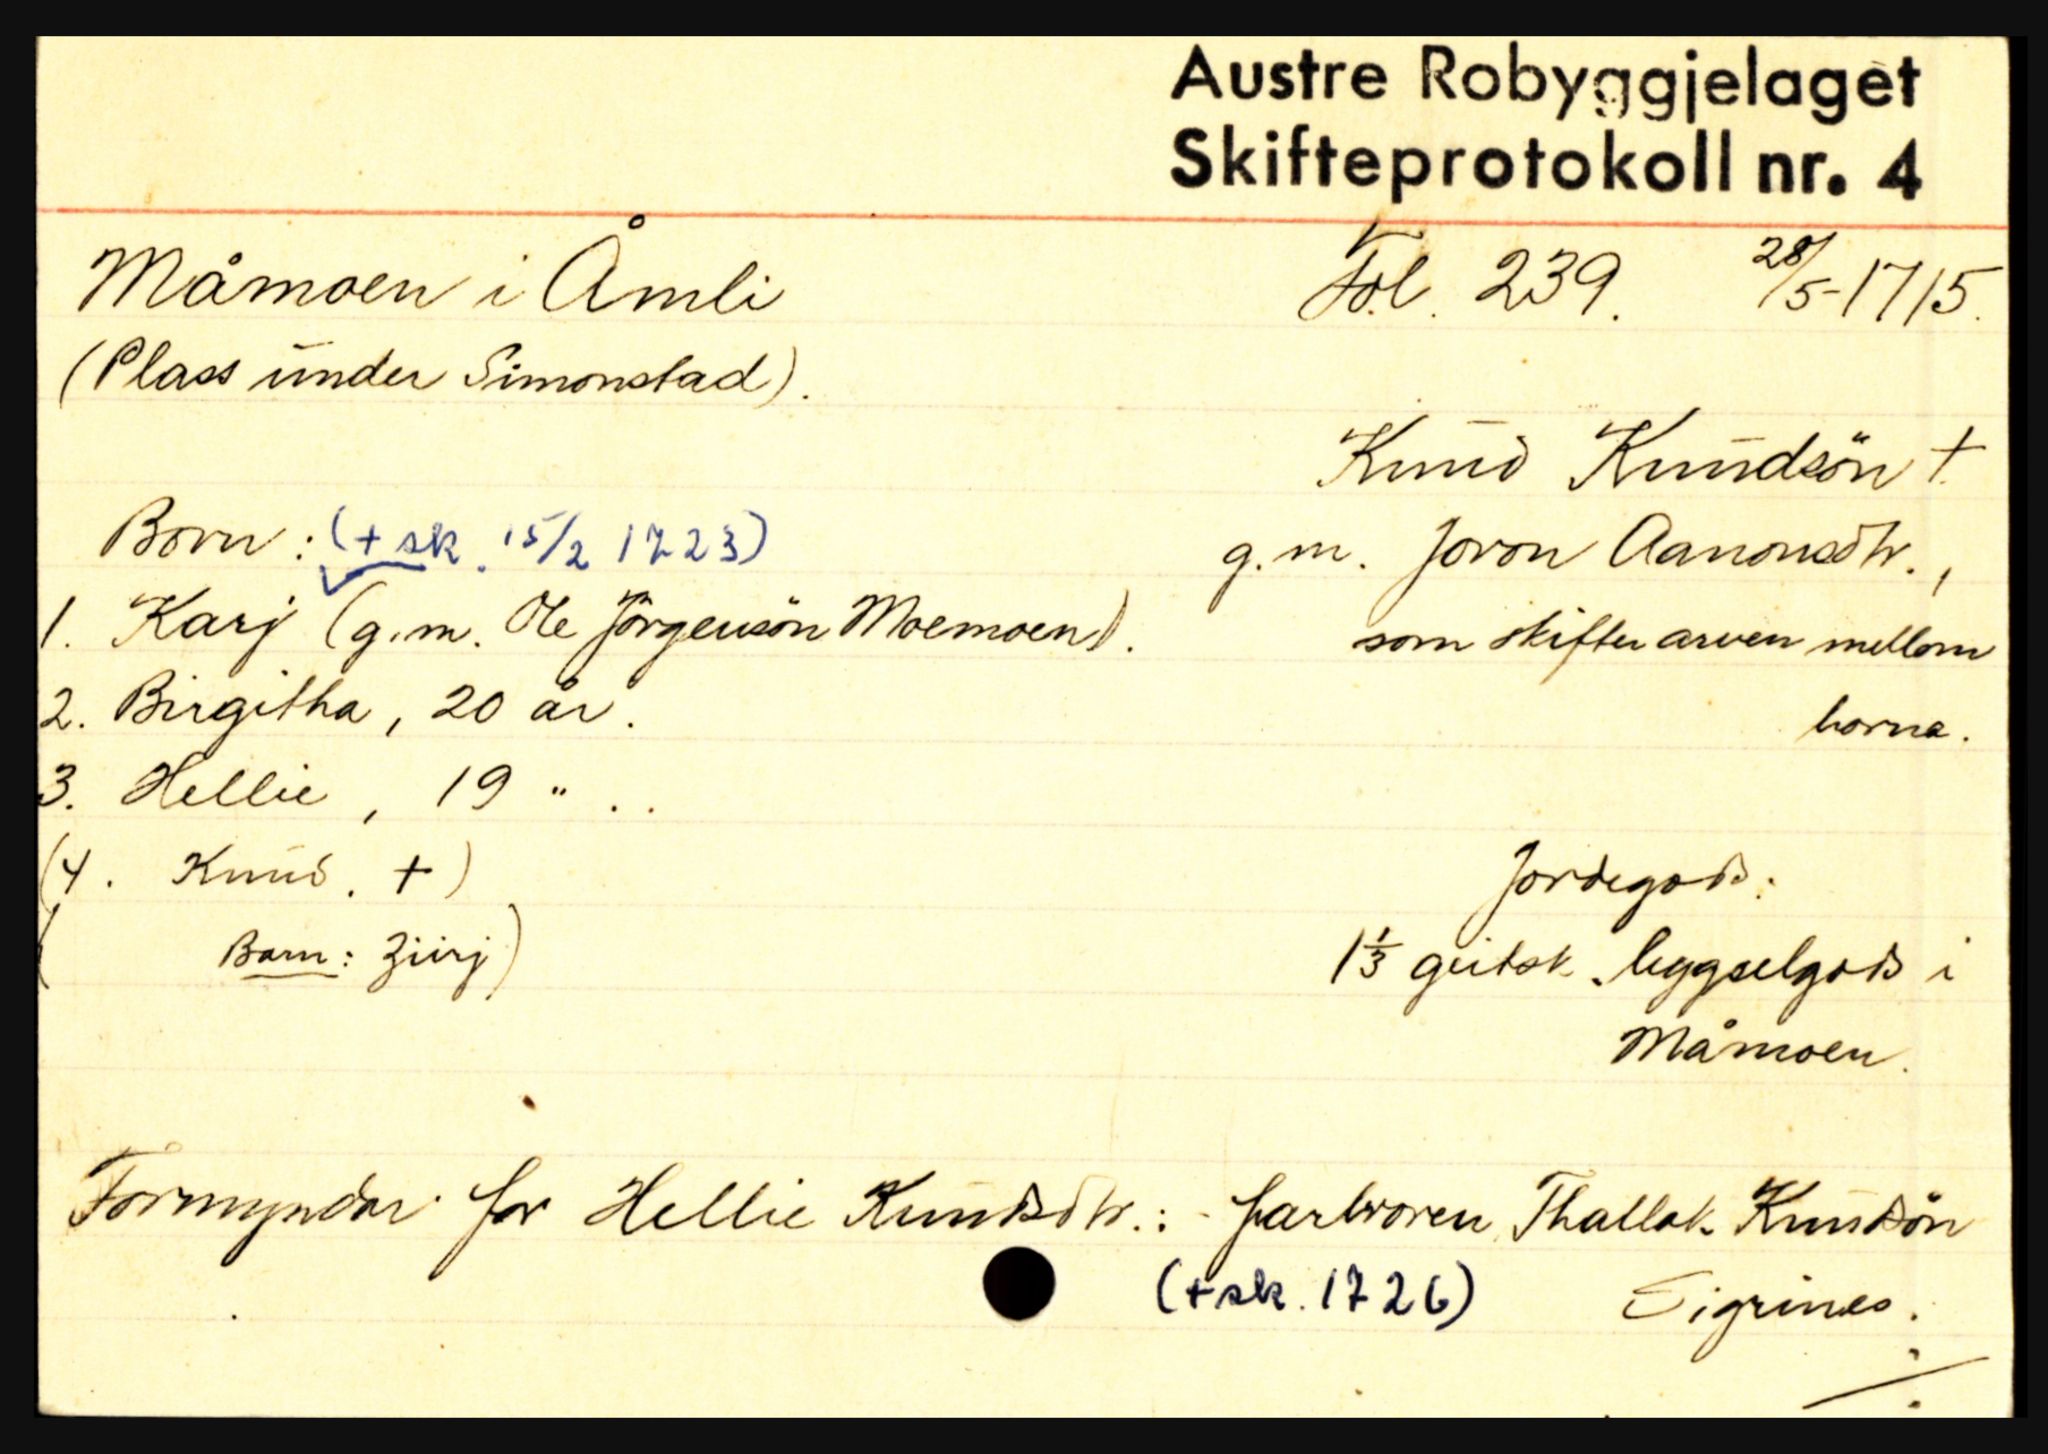 Austre Robyggjelaget
Skifteprotokoll nr. 4
Måmoen i Åmli Fol. 239. 28/5-1715.
(Plass under Simonstad).
Knud Knudsön +.
Born: (+ sk. 15/2 1723) g.m. Joron Aanonsdtr.,
1. Karj (g.m. Ole Jörgensön Moemoen). som skifter arven mellom
2. Birgitha, 20 år. borna.
3. Hellie, 19 " . .
(4. Knud. +) Jordegods:
( Barn: Zirj) 1 1/3 geitsk. byggselgods i
Måmoen.
Formyndar for Hellie Knudsdtr.: - farbroren Thallak Knudsön
(+ sk. 1726) Eigrines.